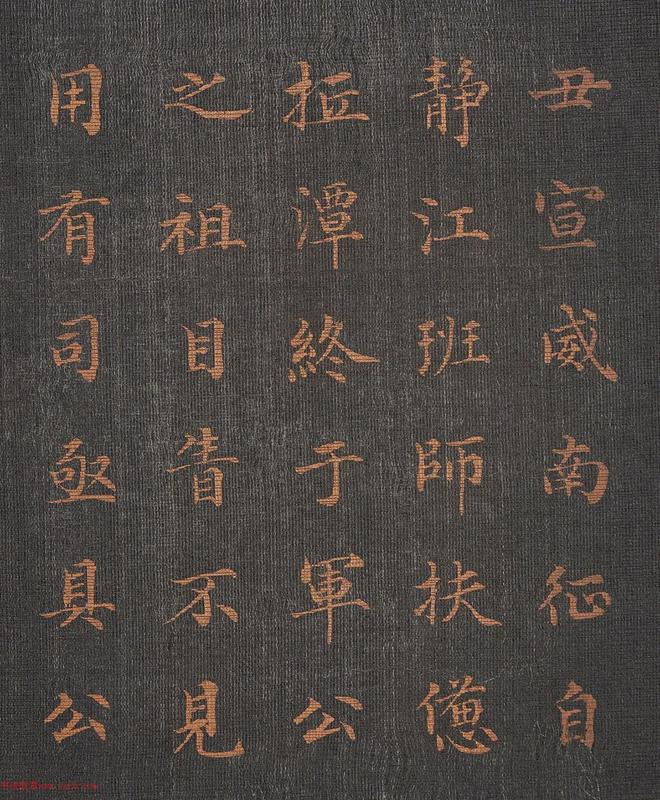 丑宣威南征自
静江班師扶憊
抵潭終于軍公
之祖目眚不見
用有司亟具公